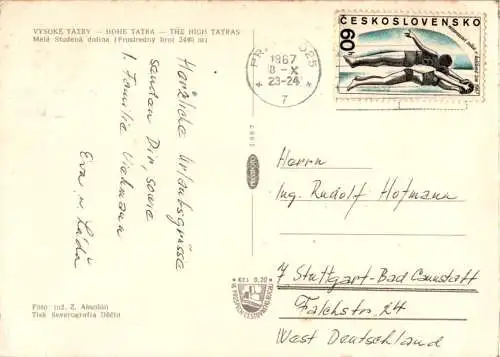 VYSOKÉ TATRY — HOHE TATRA — THE HIGH TATRAS
Malá Studená dolina (Prostredný hrot 2440 m)
Herzliche Urlaubsgrüsse
senden Dir, sowie
d. Familie Viehmann
Eva u. Láďa
Foto: inž. Z. Almásy
Tisk Severografia Děčín
1967
8-X
23-24
7
ČESKOSLOVENSKO
60
Kčs 0,20
Herrn
Ing. Rudolf Hofmann
7 Stuttgart-Bad Cannstatt
Falchstr. 24
West Deutschland